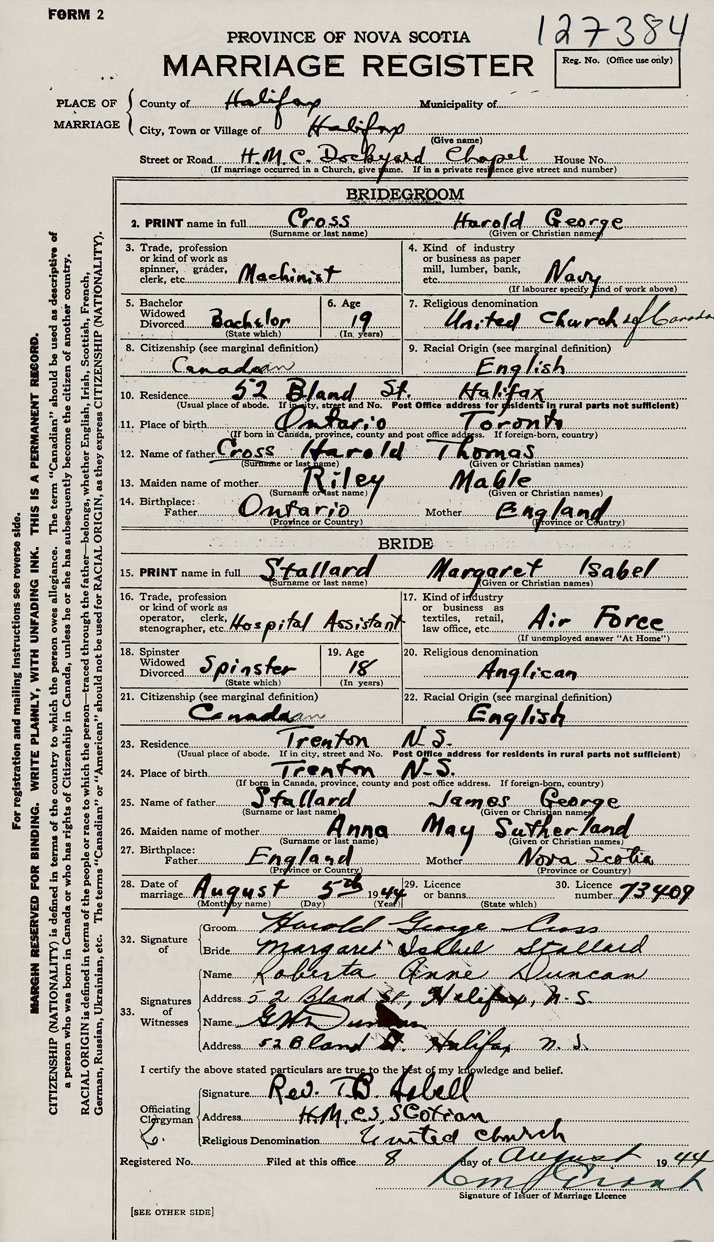 FORM 2
127384
PROVINCE OF NOVA SCOTIA
MARRIAGE REGISTER
Reg. No. (Office use only)
PLACE OF MARRIAGE
County of Halifax Municipality of
City, Town or Village of Halifax
(Give name)
Street or Road H.M.C. Dockyard Chapel House No.
(If marriage occurred in a Church, give name. If in a private residence give street and number)
BRIDEGROOM
2. PRINT name in full Cross Harold George
(Surname or last name) (Given or Christian names)
3. Trade, profession or kind of work as spinner, grader, clerk, etc. Machinist
4. Kind of industry or business as paper mill, lumber, bank, etc. Navy
(If labourer specify kind of work above)
5. Bachelor Widowed Divorced Bachelor
(State which)
6. Age 19
(In years)
7. Religious denomination
United Church of Canada
8. Citizenship (see marginal definition)
Canadian
9. Racial Origin (see marginal definition)
English
10. Residence 52 Bland St. Halifax
(Usual place of abode. If in city, street and No. Post Office address for residents in rural parts not sufficient)
11. Place of birth Ontario Toronto
(If born in Canada, province, county and post office address. If foreign-born, country)
12. Name of father Cross Harold Thomas
(Surname or last name) (Given or Christian names)
13. Maiden name of mother Riley Mable
(Surname or last name) (Given or Christian names)
14. Birthplace: Father Ontario Mother England
(Province or Country) (Province or Country)
BRIDE
15. PRINT name in full Stallard Margaret Isabel
(Surname or last name) (Given or Christian names)
16. Trade, profession or kind of work as operator, clerk, stenographer, etc. Hospital Assistant
17. Kind of industry or business as textiles, retail, law office, etc. Air Force
(If unemployed answer "At Home")
18. Spinster Widowed Divorced Spinster
(State which)
19. Age 18
(In years)
20. Religious denomination
Anglican
21. Citizenship (see marginal definition)
Canadian
22. Racial Origin (see marginal definition)
English
23. Residence Trenton N.S.
(Usual place of abode. If in city, street and No. Post Office address for residents in rural parts not sufficient)
24. Place of birth Trenton N-S.
(If born in Canada, province, county and post office address. If foreign-born, country)
25. Name of father Stallard James George
(Surname or last name) (Given or Christian names)
26. Maiden name of mother Anna May Sutherland
(Surname or last name) (Given or Christian names)
27. Birthplace: Father England Mother Nova Scotia
(Province or Country) (Province or Country)
28. Date of marriage August 5th 1944
(Month by name) (Day) (Year)
29. Licence or banns
(State which)
30. Licence number 73409
32. Signature of
Groom Harold George Cross
Bride Margaret Isabel Stallard
33. Signatures of Witnesses
Name Roberta Anne Duncan
Address 52 Bland St., Halifax, N.S.
Name G Duncan
Address 52 Bland St. Halifax N.S.
I certify the above stated particulars are true to the best of my knowledge and belief.
Officiating Clergyman
Signature Rev. T.B.
Address H.M.C.S. SCotian
Religious Denomination United Church
Registered No. Filed at this office 8 day of August 1944
Signature of Issuer of Marriage Licence
[SEE OTHER SIDE]
For registration and mailing instructions see reverse side.
MARGIN RESERVED FOR BINDING. WRITE PLAINLY, WITH UNFADING INK. THIS IS A PERMANENT RECORD.
CITIZENSHIP (NATIONALITY) is defined in terms of the country to which the person owes allegiance. The term "Canadian" should be used as descriptive of
a person who was born in Canada or who has rights of Citizenship in Canada, unless he or she has subsequently become the citizen of another country.
RACIAL ORIGIN is defined in terms of the people or race to which the person—traced through the father—belongs, whether English, Irish, Scottish, French,
German, Russian, Ukrainian, etc. The terms "Canadian" or "American" should not be used for RACIAL ORIGIN, as they express CITIZENSHIP (NATIONALITY).